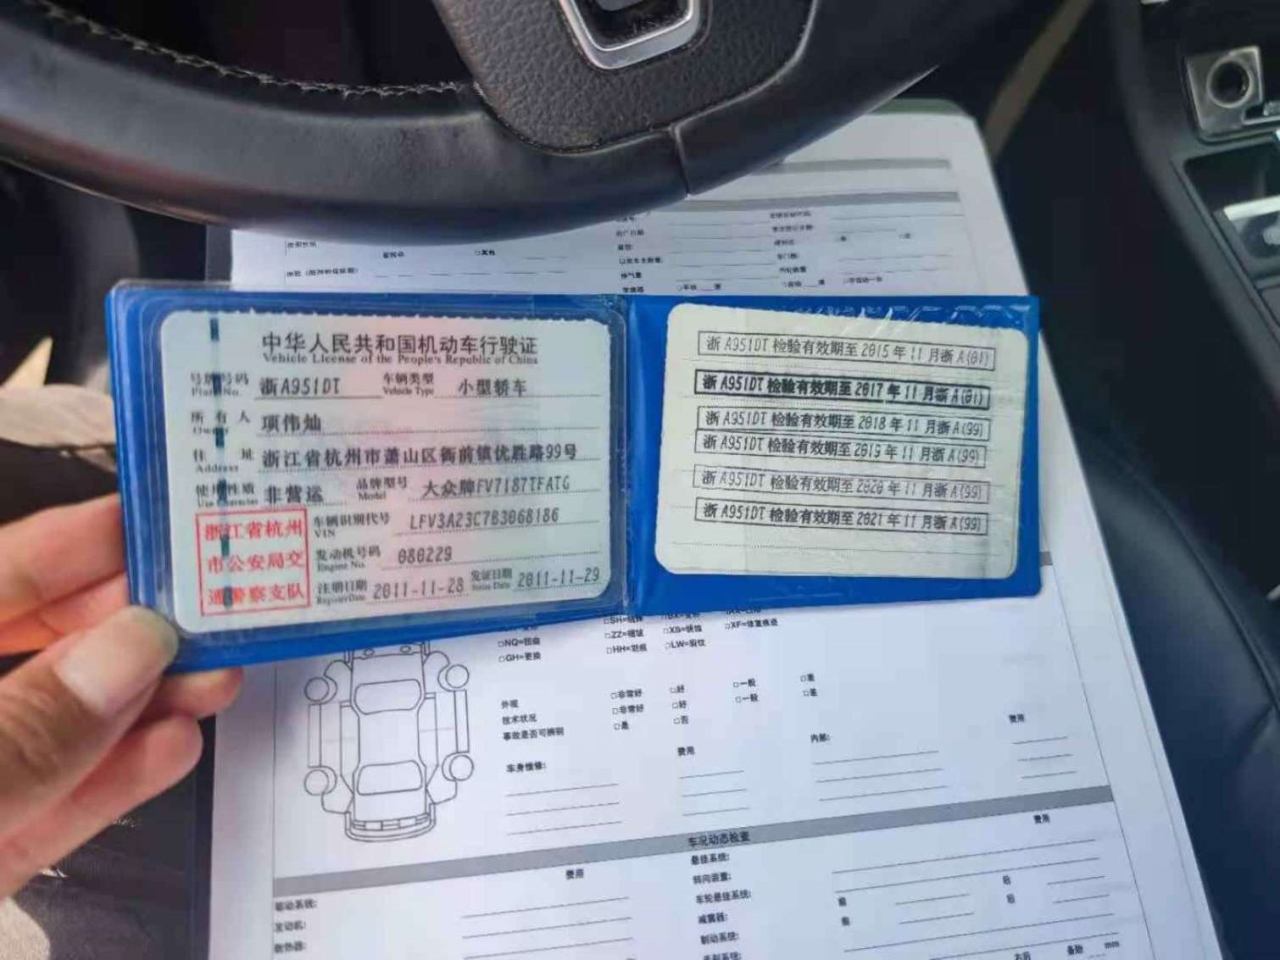 中华人民共和国机动车行驶证
Vehicle License of the People's Republic of China
号牌号码 浙A951DT 车辆类型 小型轿车
Plate No. Vehicle Type
所有人 项伟灿
Owner
住址 浙江省杭州市萧山区衙前镇优胜路99号
Address
使用性质 非营运 品牌型号 大众牌FV7187TFATG
Use Character Model
浙江省杭州
市公安局交
通警察支队
车辆识别代号 LFV3A23C7B3068186
VIN
发动机号码 080229
Engine No.
注册日期 2011-11-28 发证日期 2011-11-29
Register Date Issue Date
浙A951DT 检验有效期至2015年11月浙A(01)
浙A951DT 检验有效期至2017年11月浙A(01)
浙A951DT 检验有效期至2018年11月浙A(99)
浙A951DT 检验有效期至2019年11月浙A(99)
浙A951DT 检验有效期至2020年11月浙A(99)
浙A951DT 检验有效期至2021年11月浙A(99)
□NQ=扭曲 □ZZ=褶皱 □XS=锈蚀 □XF=修复痕迹
□GH=更换 □HH=划痕 □LW=裂纹
外观 □非常好 □好 □一般 □差
技术状况 □非常好 □好 □一般 □差
事故是否可辨别 □是 □否
车身维修: 费用 内部: 费用
车况动态检查
费用 悬挂系统: 费用
驱动系统: 转向装置:
发动机: 车轮悬挂系统: 前 后
散热器: 减震器: 前 后
制动系统:
右后 备胎 mm